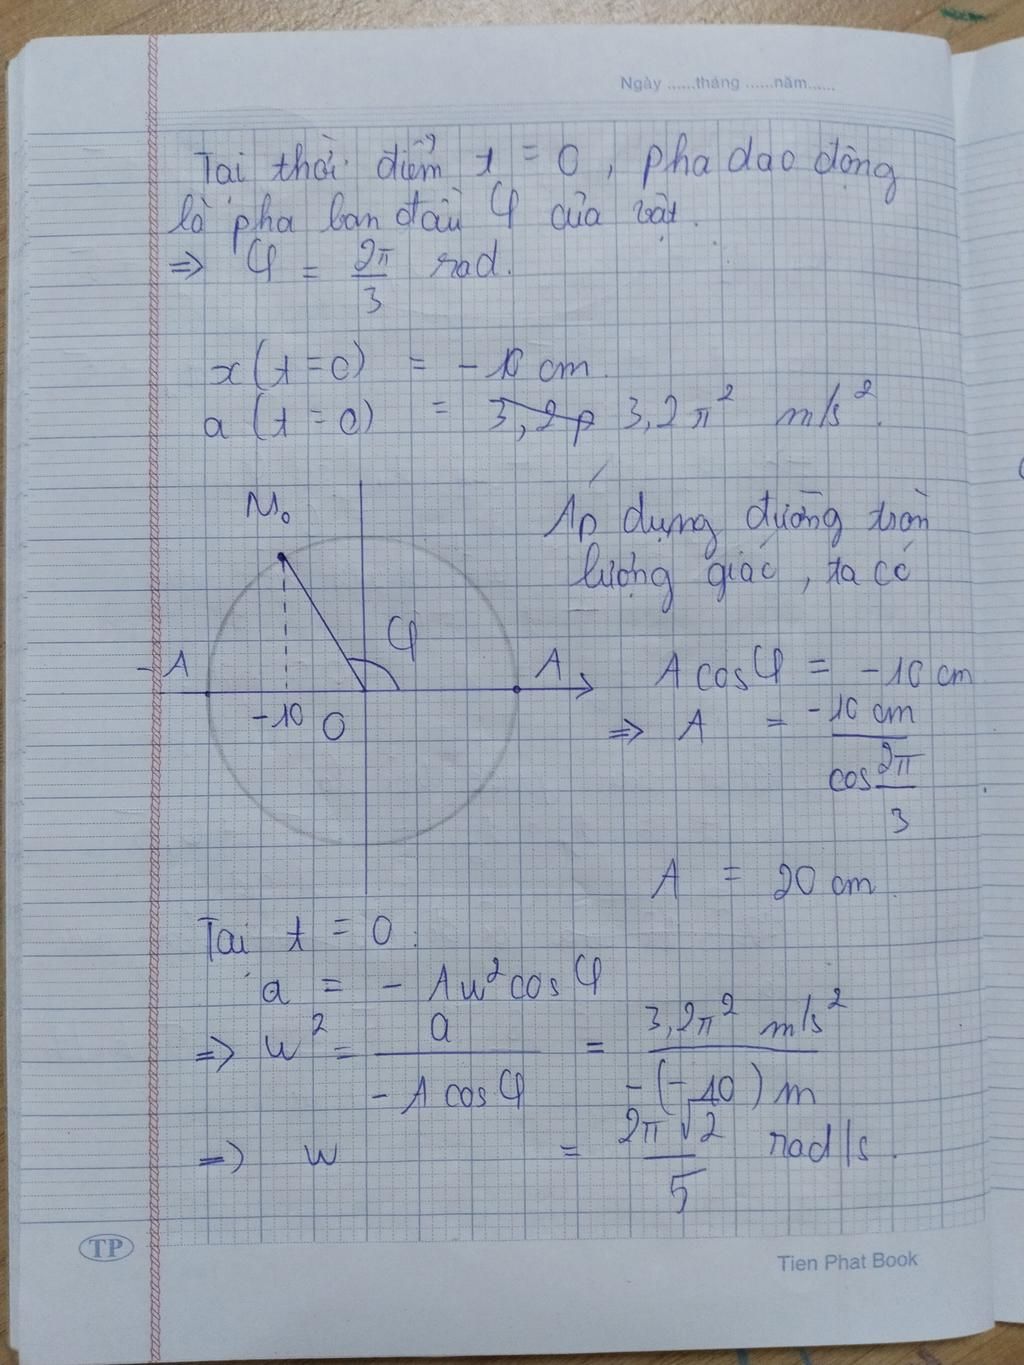 Ngày ......tháng ......năm......
Tại thời điểm t = 0, pha dao động
là pha ban đầu φ của vật.
⇒ φ = 2π/3 rad.
x(t=0) = -10 cm.
a(t=0) = 3,2p 3,2π² m/s².
M₀
Áp dụng đường tròn
lượng giác, ta có
φ
-A
A
-10 O
A cosφ = -10 cm
⇒ A = -10 cm / cos 2π/3
A = 20 cm.
Tại t = 0.
a = - Aw²cosφ
⇒ w² = a / - A cosφ = 3,2π² m/s² / -(-10) m
⇒ w = 2π√2 / 5 rad/s.
TP
Tien Phat Book